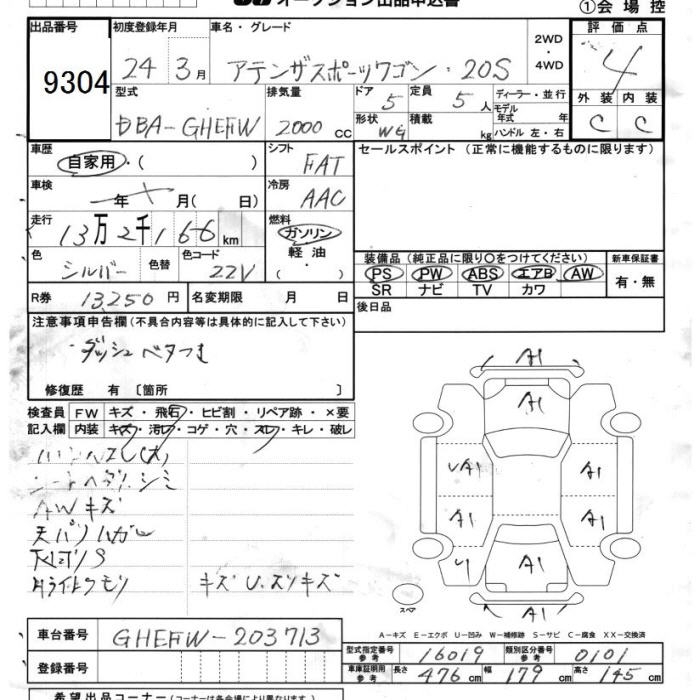 オークション出品申込書
①会場控
出品番号 初度登録年月 車名・グレード 評価点
9304 24年3月 アテンザスポーツワゴン・20S 2WD・4WD 4
型式 排気量 ドア 5 定員 5人 ディーラー・並行 外装 内装
DBA-GHEFW 2000cc 形状 WG 積載 kg モデル年式 年 ハンドル 左・右 C C
車歴 シフト セールスポイント(正常に機能するものに限ります)
自家用・( ) FAT
車検 年 月( 日) 冷房 AAC
走行 13万2千166km 燃料 ガソリン
軽油
・( )
色 シルバー 色替 色コード 22V
装備品(純正品に限り○をつけてください) 新車保証書
PS PW ABS エアB AW 有・無
SR ナビ TV カワ
R券 13,250円 名変期限 月 日 後日品
注意事項申告欄(不具合内容等は具体的に記入して下さい)
ダッシュベタつき
修復歴 有〔箇所 〕
検査員 FW キズ・飛石・ヒビ割・リペア跡・×要
記入欄 内装 キズ・汚レ・コゲ・穴・スレ・キレ・破レ
AWキズ
キズU.スリキズ
A1
A1
UA1 A1
A1 A1
A1
U
A1
スペア
A-キズ E-エクボ U-凹み W-補修跡 S-サビ C-腐食 XX-交換済
車台番号 GHEFW-203713
型式指定番号 参考 16019 類別区分番号 参考 0101
登録番号
車庫証明用 参考 長さ 476cm 幅 179cm 高さ 145cm
希望出品コーナー(コーナーは各会場により異なります)